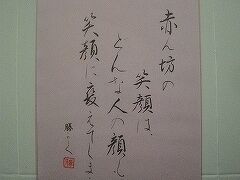 赤ん坊の
笑顔は、
どんな人の顔も
笑顔に変えてしま